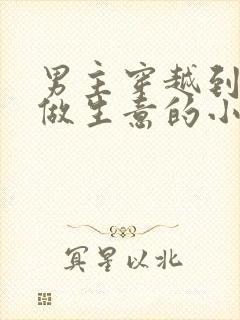 男主穿越到
做生意的小
冥星以北